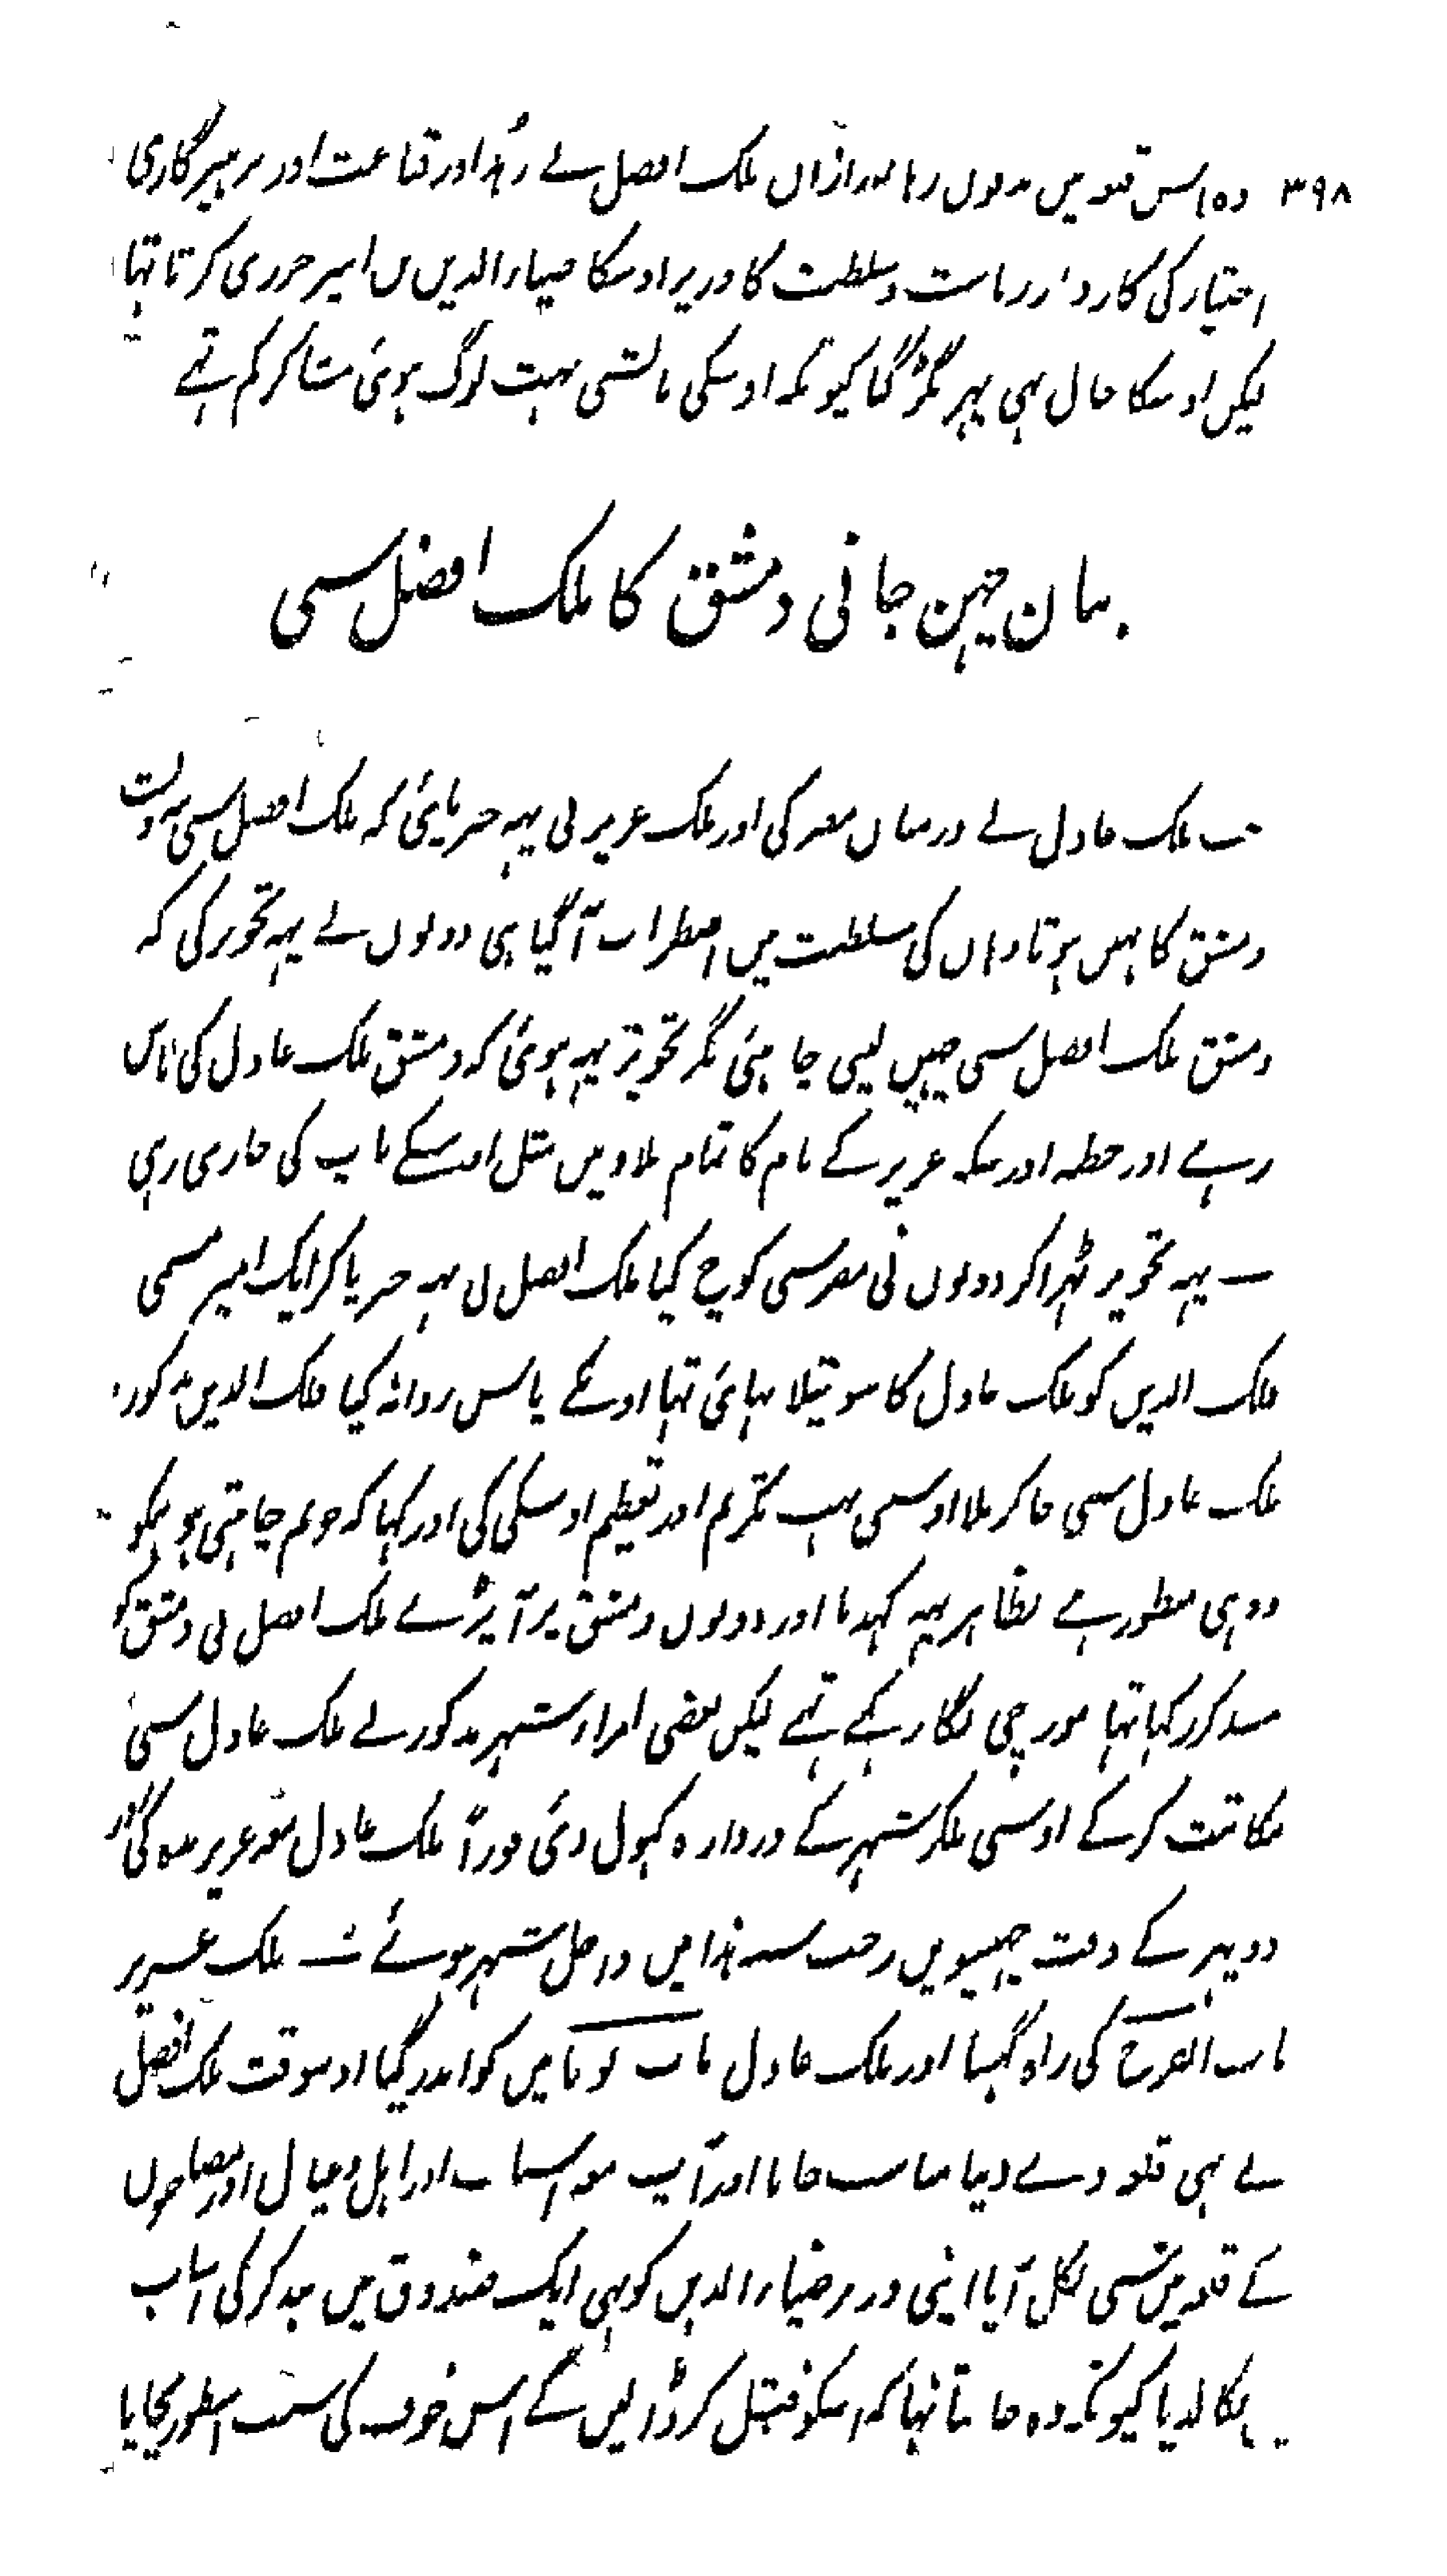 ۳۹۸ وہ اس قلعہ میں مدفون رہا بعد ازاں ملک افضل نے زُہد اور قناعت اور پرہیزگاری
اختیار کی کاروبار ریاست و سلطنت کا وزیر اوسکا ضیاء الدین بن اثیر جزری کرتا تہا
لیکن اوسکا حال بہی پہر بگڑ گیا کیونکہ اوسکی بالشی بہت لوگ ہوئی شاکر کم تہے
بیان چہن جانی دمشق کا ملک افضل سی
جب ملک عادل نے درمیان مصر کی اور ملک عزیز نی یہہ خبر پائی کہ ملک افضل سی بندوبست
دمشق کا نہیں ہوتا وہاں کی سلطنت میں اضطراب آگیا ہی دونوں نے یہہ تجویز کی کہ
دمشق ملک افضل سی چہین لیی جاہئی مگر تجویز یہہ ہوئی کہ دمشق ملک عادل کی پاس
رہے اور خطبہ اور سکہ عزیز کے نام کا تمام بلاد میں مثل اوسکے باپ کی جاری رہی
یہہ تجویز ٹہراکر دونوں نی مصر سی کوچ کیا ملک افضل نی یہہ خبر پاکر ایک امیر مسمی
فلک الدین کو ملک عادل کا سوتیلا بہائی تہا اوسکے پاس روانہ کیا فلک الدین مذکور
ملک عادل سی جاکر ملا اوسی بہت تکریم اور تعظیم اوسکی کی اور کہا کہ جو تم چاہتی ہو ہمکو
وہ ہی منظور ہے بظاہر یہہ کہدیا اور دونوں دمشق پر آپڑے ملک افضل نی دمشق کو
بند کر رکہا تہا مورچی لگا رکہے تہے لیکن بعضی امراء شہر مذکور نے ملک عادل سی
مکاتبت کرکے اوسی ملکر شہر کے دروازہ کہول دئی فوراً ملک عادل معہ عزیز مدہ کی اور
دوپہر کے وقت چہبیسویں رجب سنہ ہذا میں داخل شہر ہوئے ملک عزیز
باب الفرج کی راہ گہسا اور ملک عادل باب توما میں کو اندر گیا اوسوقت ملک افضل
نے بہی قلعہ دے دینا مناسب جانا اور آپ معہ اسباب اور اہل و عیال اور مصاحبوں
کے قلعہ میں سی نکل آیا اپنی وزیر ضیاء الدین کو بہی ایک صندوق میں بند کر کی اسباب
نکالدیا کیونکہ وہ جانتا تہا کہ اسکو قتل کر ڈالیں گے اس خوف کی سبب اسطور بچایا